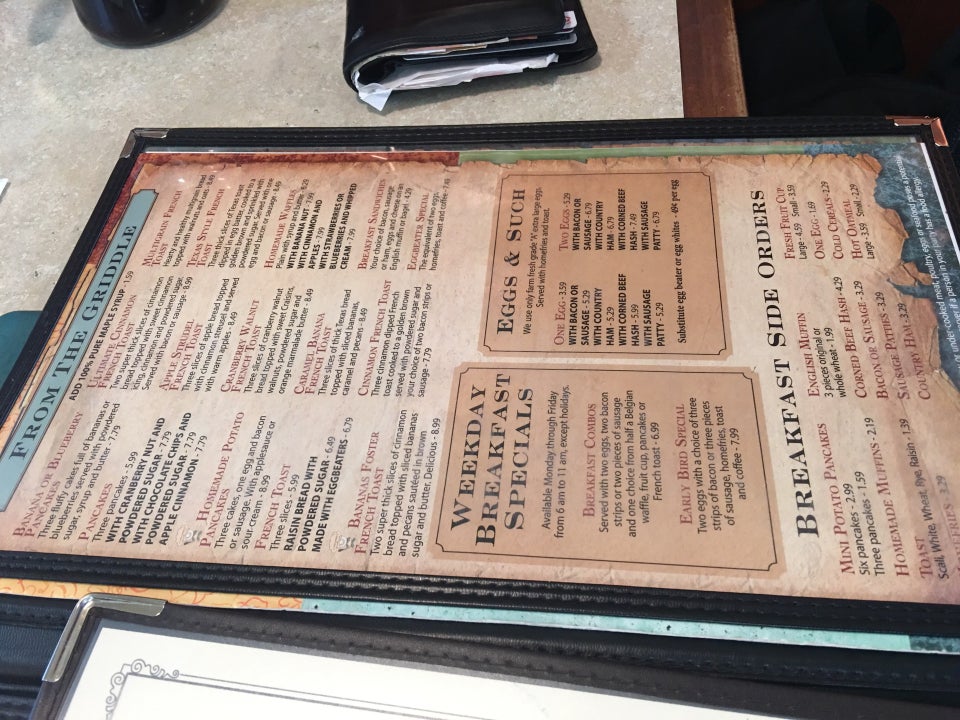 FROM THE GRIDDLE
ADD 100% PURE MAPLE SYRUP - 1.59
BANANA OR BLUEBERRY
PANCAKES
Three fluffy cakes full of bananas or
blueberries served with powdered
sugar, syrup and butter. - 7.79
PANCAKES
Three pancakes - 5.99
WITH CRANBERRY NUT AND
POWDERED SUGAR - 7.79
WITH CHOCOLATE CHIPS AND
POWDERED SUGAR - 7.79
APPLE CINNAMON - 7.79
HOMEMADE POTATO
PANCAKES
Three cakes, one egg and bacon
or sausage. With applesauce or
sour cream - 8.99
FRENCH TOAST
Three slices - 5.99
RAISIN BREAD WITH
POWDERED SUGAR - 6.49
MADE WITH EGGBEATERS - 6.79
BANANAS FOSTER
FRENCH TOAST
Two super thick slices of cinnamon
bread topped with sliced bananas
and pecans sautéed in brown
sugar and butter. Delicious - 8.99
ULTIMATE CINNAMON
FRENCH TOAST
Two super thick slices of cinnamon
bread topped with sweet cinnamon
icing, cinnamon and powdered sugar.
Served with bacon or sausage - 8.99
APPLE STRUDEL
FREE STRUDEL
Three slices of apple bread topped
with cinnamon streusel and served
with warm apples - 8.49
CRANBERRY WALNUT
FRENCH TOAST
Three slices of cranberry walnut
bread topped with sweet Cuisins,
walnuts, powdered sugar and
orange marmalade butter - 8.49
CARAMEL BANANA
FRENCH TOAST
Three slices of thick Texas bread
topped with sliced bananas,
caramel and pecans - 8.49
CINNAMON FRENCH TOAST
Three cinnamon dipped French
toast cooked to a golden brown
served with powdered sugar and
your choice of two bacon strips or
sausage - 7.79
MULTI-GRAIN FRENCH
TOAST
Hearty and healthy multigrain bread
topped with walnuts and oats - 8.49
TEXAS STYLE FRENCH
TOAST
Three thick slices of Texas toast
dipped in egg batter, cooked to a
golden brown and served with
powdered sugar. Served with one
egg and bacon or sausage - 8.49
HOMEMADE WAFFLES
Plain with syrup and butter - 6.29
WITH BANANA NUT - 7.99
WITH CINNAMON AND
APPLES - 7.99
WITH STRAWBERRIES OR
BLUEBERRIES AND WHIPPED
CREAM - 7.99
BREAKFAST SANDWICHES
Your choice of bacon, sausage
or ham, eggs and cheese on an
English muffin or bagel - 4.29
EGGBEATER SPECIAL
The equivalent of two eggs,
homefries, toast and coffee - 7.49
WEEKDAY
BREAKFAST
SPECIALS
Available Monday through Friday
from 6 am to 11 am, except holidays.
BREAKFAST COMBOS
Served with two eggs, two bacon
strips or two pieces of sausage
and one choice from half a Belgian
waffle, fruit cup, pancakes or
French toast - 6.99
EARLY BIRD SPECIAL
Two eggs with a choice of three
strips of bacon or three pieces
of sausage, homefries, toast
and coffee - 7.99
EGGS & SUCH
We use only farm fresh grade "A" extra large eggs.
Served with homefries and toast.
ONE EGG - 3.59
WITH BACON OR
SAUSAGE - 5.29
WITH COUNTRY
HAM - 5.29
WITH CORNED BEEF
HASH - 5.99
WITH SAUSAGE
PATTY - 5.29
TWO EGGS - 5.29
WITH BACON OR
SAUSAGE - 6.79
WITH COUNTRY
HAM - 6.79
WITH CORNED BEEF
HASH - 7.49
WITH SAUSAGE
PATTY - 6.79
Substitute egg beater or egg whites - 49¢ per egg
BREAKFAST SIDE ORDERS
MINI POTATO PANCAKES
Six pancakes - 2.99
Three pancakes - 1.59
HOMEMADE MUFFINS - 2.19
TOAST
Scali, White, Wheat, Rye, Raisin - 1.39
ENGLISH MUFFIN
3 pieces original or
whole wheat - 1.99
CORNED BEEF HASH - 4.29
BACON OR SAUSAGE - 3.29
SAUSAGE PATTIES - 3.29
COUNTRY HAM - 3.29
FRESH FRUIT CUP
Large - 4.59 Small - 3.59
ONE EGG - 1.69
COLD CEREALS - 2.29
HOT OATMEAL
Large - 3.59 Small - 2.29
or under-cooked meat, poultry, eggs or seafood pose a potential
if a person in your party has a food allergy.